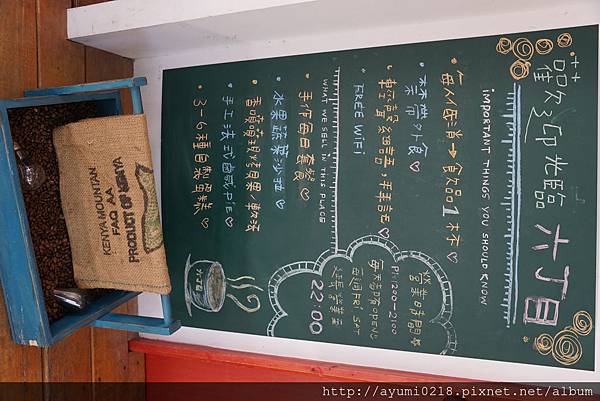 歡迎光臨 六丁目
IMPORTANT THINGS YOU SHOULD KNOW
• 每人低消→飲品1杯♡
• 禁帶外食♡
• FREE WIFI
WHAT WE SELL IN THIS PLACE
• 手作每日套餐♡
• 水果蔬菜沙拉♡
• 香噴噴現烤貝果/軟法♡
• 手工法式鹹PIE♡
• 3-6種自製蛋糕♡
營業時間
PM 1200-2100
OPEN
每週FRI SAT
延長營業至
22:00
KENYA MOUNTAIN
FAQ AA
PRODUCT OF KENYA
http://ayumi0218.pixnet.net/album